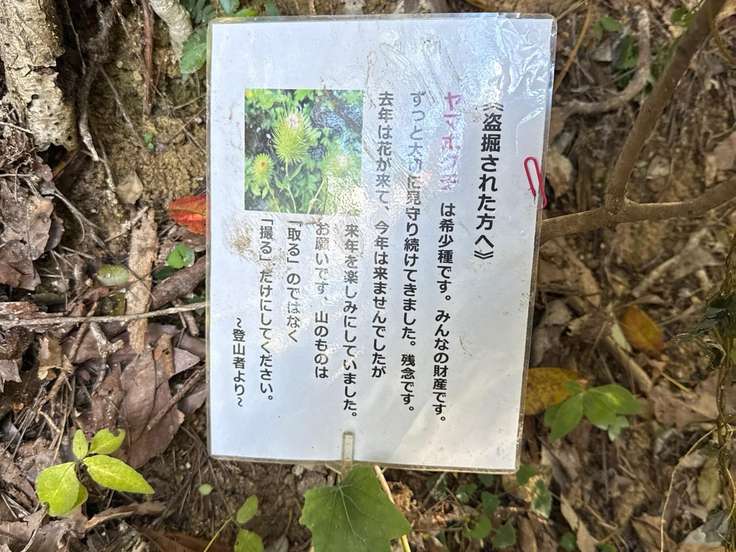 《盗掘された方へ》
ヤマボクチ は希少種です。みんなの財産です。
ずっと大切に見守り続けてきました。残念です。
去年は花が来て、今年は来ませんでしたが
来年を楽しみにしていました。
お願いです、山のものは
「取る」のではなく
「撮る」だけにしてください。
~登山者より~